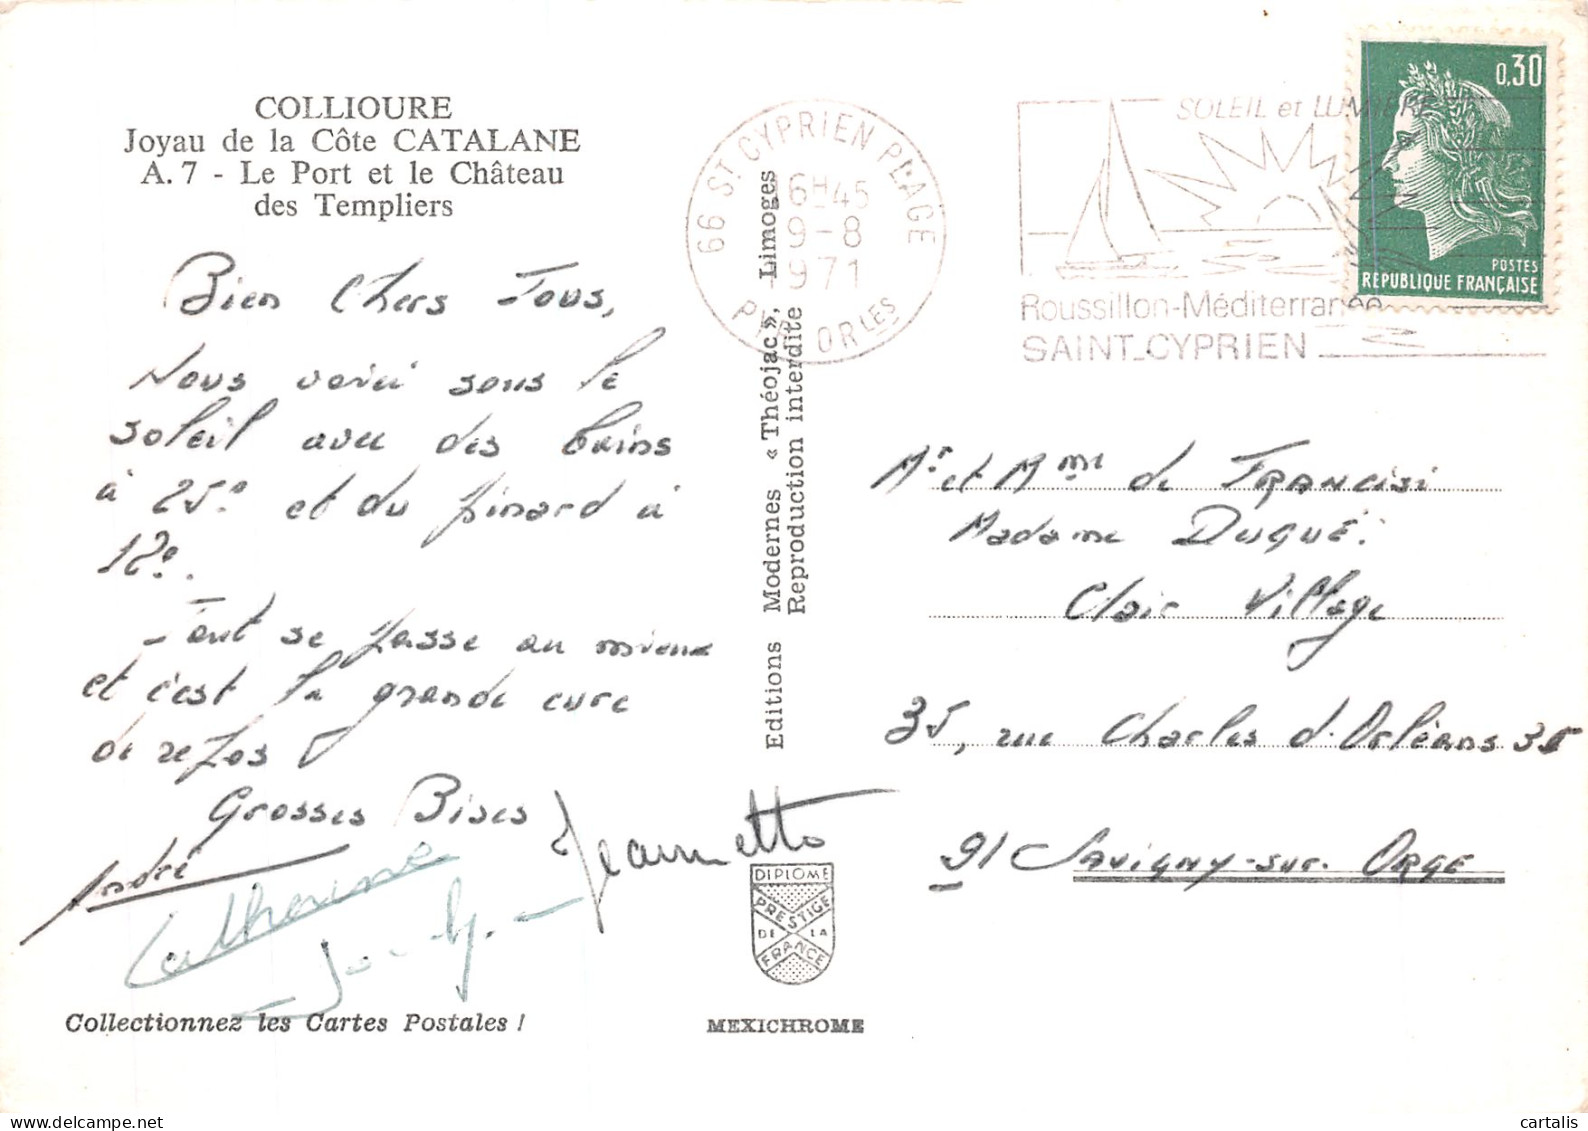 COLLIOURE
Joyau de la Côte CATALANE
A. 7 - Le Port et le Château
des Templiers
Bien Chers Tous,
Nous voici sous le
soleil avec des bains
à 25° et du pinard à
12°.
Tout se passe au mieux
et c'est la grande cure
de repos !
Grosses Bises
André
Catherine
Jeannette
Collectionnez les Cartes Postales !
Editions Modernes « Théojac », Limoges
Reproduction interdite
DIPLOME
PRESTIGE
DE LA
FRANCE
MEXICHROME
66 ST CYPRIEN PLAGE
16H45
9-8
1971
PYR. ORLES
SOLEIL et LUMIERE
Roussillon-Méditerranée
SAINT-CYPRIEN
0,30
POSTES
REPUBLIQUE FRANÇAISE
Mr et Mme de FRANCISI
Madame DUQUÉ.
Clair Village
35, rue Charles d'Orléans 35
91 SAVIGNY-sur-ORGE
cartalis